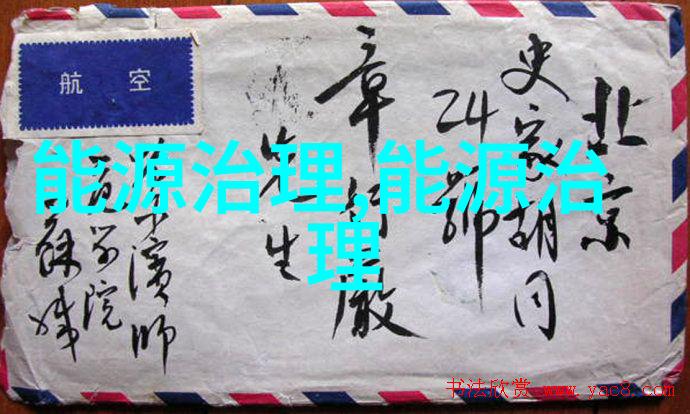 航空
北京
史家胡同
24號
章行嚴
先生
濱師
院
能源治理,能源治
理
书法欣赏 www.yac8.com